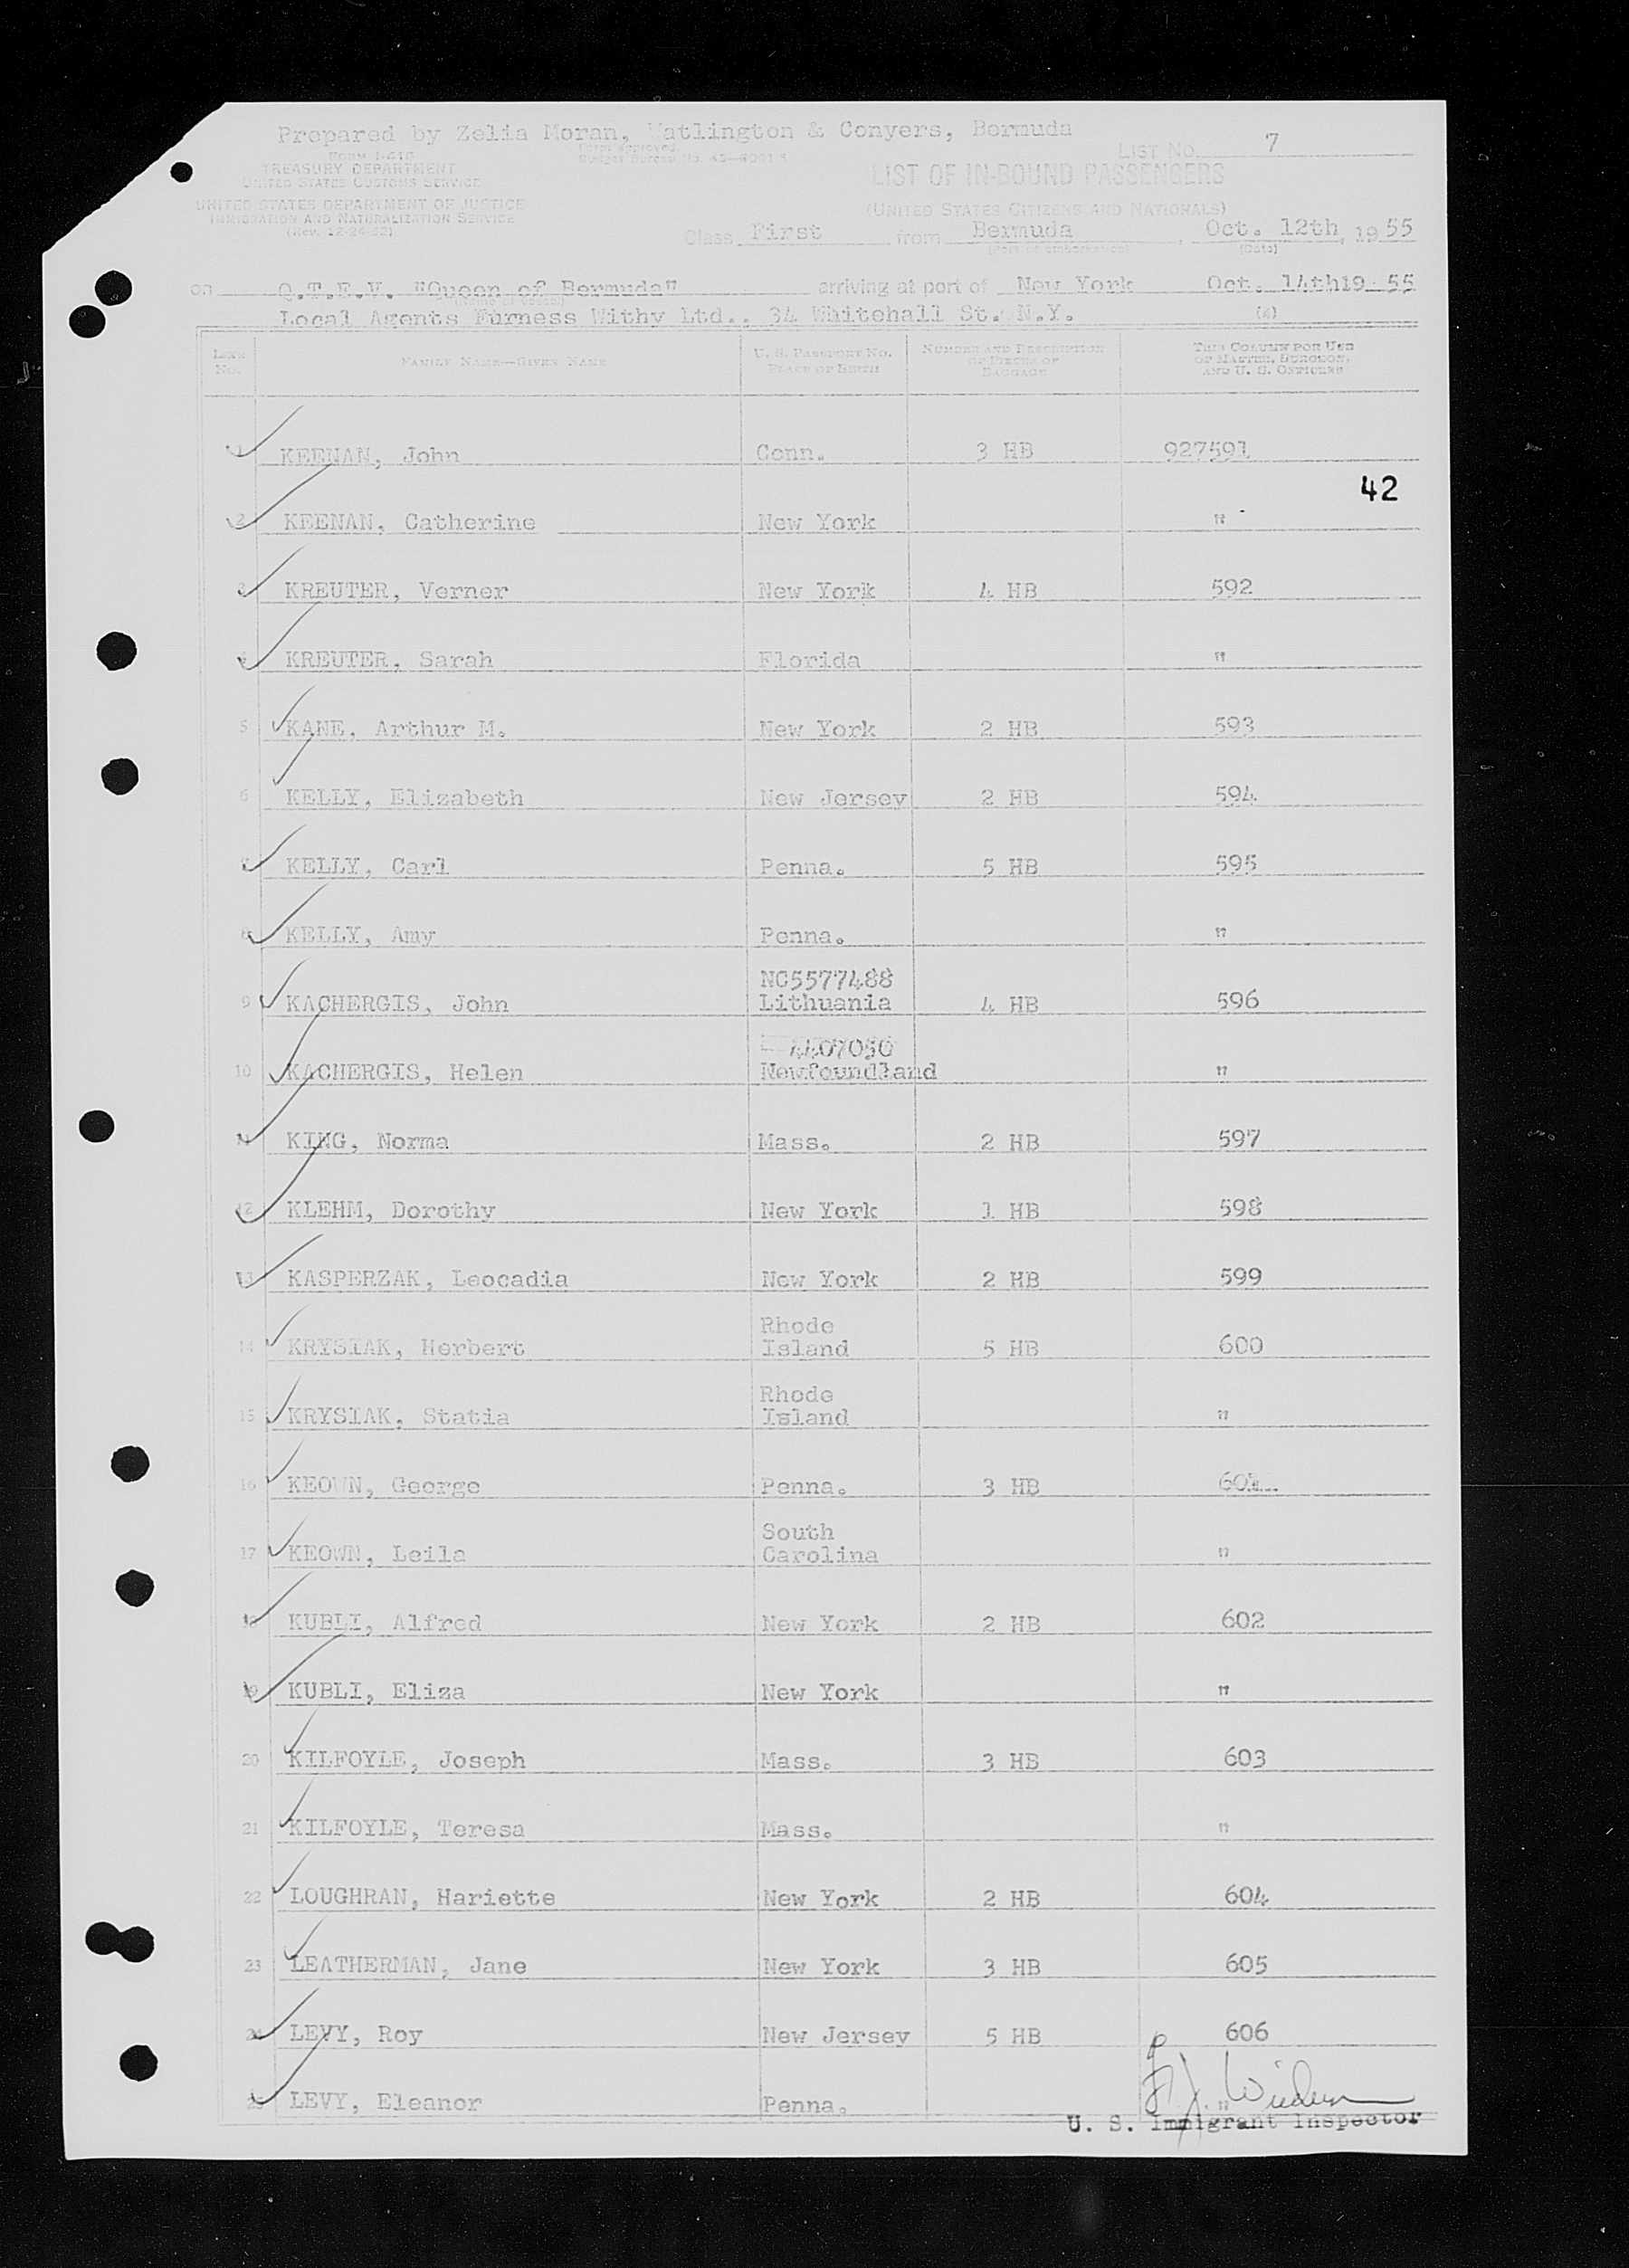 Prepared by Zelia Moran, Watlington & Conyers, Bermuda
Form I-418
Form approved.
Budget Bureau No. 43-R001.3
LIST NO. 7
TREASURY DEPARTMENT
UNITED STATES CUSTOMS SERVICE
LIST OF IN-BOUND PASSENGERS
UNITED STATES DEPARTMENT OF JUSTICE
IMMIGRATION AND NATURALIZATION SERVICE
(UNITED STATES CITIZENS AND NATIONALS)
Class First from Bermuda, Oct. 12th, 1955
(Port of embarkation) (Date)
on Q.T.E.V. "Queen of Bermuda" arriving at port of New York Oct. 14th 19 55
(Name of vessel)
Local Agents Furness Withy Ltd.. 34 Whitehall St. N.Y. (4)
LINE NO. FAMILY NAME—GIVEN NAME U. S. PASSPORT NO. PLACE OF BIRTH NUMBER AND DESCRIPTION OF PIECES OF BAGGAGE THIS COLUMN FOR USE OF MASTER, SURGEON, AND U. S. OFFICERS
1 KEENAN, John Conn. 3 HB 927591
42
2 KEENAN, Catherine New York "
3 KREUTER, Verner New York 4 HB 592
4 KREUTER, Sarah Florida "
5 KANE, Arthur M. New York 2 HB 593
6 KELLY, Elizabeth New Jersey 2 HB 594
7 KELLY, Carl Penna. 5 HB 595
8 KELLY, Amy Penna. "
NC5577488
9 KACHERGIS, John Lithuania 4 HB 596
4407050
10 KACHERGIS, Helen Newfoundland "
11 KING, Norma Mass. 2 HB 597
12 KLEHM, Dorothy New York 1 HB 598
13 KASPERZAK, Leocadia New York 2 HB 599
Rhode
14 KRYSIAK, Herbert Island 5 HB 600
Rhode
15 KRYSIAK, Statia Island "
16 KEOWN, George Penna. 3 HB 601
South
17 KEOWN, Leila Carolina "
18 KUBLI, Alfred New York 2 HB 602
19 KUBLI, Eliza New York "
20 KILFOYLE, Joseph Mass. 3 HB 603
21 KILFOYLE, Teresa Mass. "
22 LOUGHRAN, Hariette New York 2 HB 604
23 LEATHERMAN, Jane New York 3 HB 605
24 LEVY, Roy New Jersey 5 HB 606
25 LEVY, Eleanor Penna. "
U. S. Immigrant Inspector